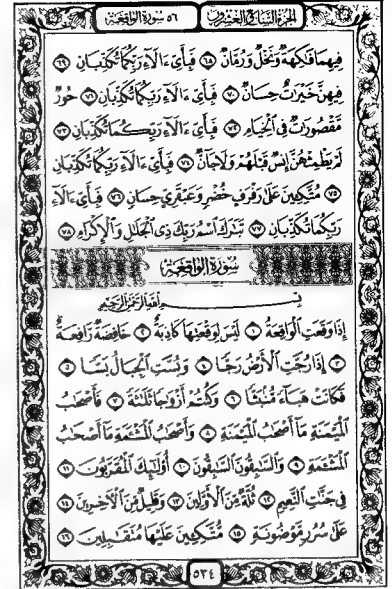 الجزء السابع والعشرون ٥٦ سورة الواقعة
فِيهِمَا فَاكِهَةٌ وَنَخْلٌ وَرُمَّانٌ ٦٨ فَبِأَيِّ ءَالَآءِ رَبِّكُمَا تُكَذِّبَانِ ٦٩
فِيهِنَّ خَيْرَاتٌ حِسَانٌ ٧٠ فَبِأَيِّ ءَالَآءِ رَبِّكُمَا تُكَذِّبَانِ ٧١ حُورٌ
مَّقْصُورَاتٌ فِي ٱلْخِيَامِ ٧٢ فَبِأَيِّ ءَالَآءِ رَبِّكُمَا تُكَذِّبَانِ ٧٣
لَمْ يَطْمِثْهُنَّ إِنسٌ قَبْلَهُمْ وَلَا جَآنٌّ ٧٤ فَبِأَيِّ ءَالَآءِ رَبِّكُمَا تُكَذِّبَانِ
٧٥ مُتَّكِـِٔينَ عَلَىٰ رَفْرَفٍ خُضْرٍ وَعَبْقَرِيٍّ حِسَانٍ ٧٦ فَبِأَيِّ ءَالَآءِ
رَبِّكُمَا تُكَذِّبَانِ ٧٧ تَبَٰرَكَ ٱسْمُ رَبِّكَ ذِي ٱلْجَلَٰلِ وَٱلْإِكْرَامِ ٧٨
سُورَةُ الوَاقِعَةِ
بِسْمِ ٱللَّهِ ٱلرَّحْمَٰنِ ٱلرَّحِيمِ
إِذَا وَقَعَتِ ٱلْوَاقِعَةُ ١ لَيْسَ لِوَقْعَتِهَا كَاذِبَةٌ ٢ خَافِضَةٌ رَّافِعَةٌ
٣ إِذَا رُجَّتِ ٱلْأَرْضُ رَجًّا ٤ وَبُسَّتِ ٱلْجِبَالُ بَسًّا ٥
فَكَانَتْ هَبَآءً مُّنۢبَثًّا ٦ وَكُنتُمْ أَزْوَٰجًا ثَلَٰثَةً ٧ فَأَصْحَٰبُ
ٱلْمَيْمَنَةِ مَآ أَصْحَٰبُ ٱلْمَيْمَنَةِ ٨ وَأَصْحَٰبُ ٱلْمَشْـَٔمَةِ مَآ أَصْحَٰبُ
ٱلْمَشْـَٔمَةِ ٩ وَٱلسَّٰبِقُونَ ٱلسَّٰبِقُونَ ١٠ أُو۟لَٰٓئِكَ ٱلْمُقَرَّبُونَ ١١
فِي جَنَّٰتِ ٱلنَّعِيمِ ١٢ ثُلَّةٌ مِّنَ ٱلْأَوَّلِينَ ١٣ وَقَلِيلٌ مِّنَ ٱلْـَٔاخِرِينَ ١٤
عَلَىٰ سُرُرٍ مَّوْضُونَةٍ ١٥ مُّتَّكِـِٔينَ عَلَيْهَا مُتَقَٰبِلِينَ ١٦
٥٣٤